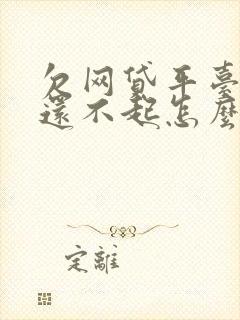 欠网贷平臺
還不起怎麼
定離